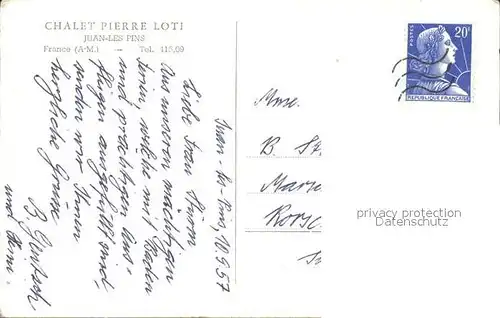 CHALET PIERRE LOTI
JUAN-LES PINS
France (A-M.) — Tel. 115,09
Juan-les-Pins, 10.9.57
Liebe Frau Sturm
Aus unseren mächtigen
Ferien welche mit Baden
und prächtigen Aus-
flügen ausgefüllt sind,
senden wir Ihnen
herzliche Grüsse
B.
und
Mme.
B. St
Mars
Rorsc
POSTES
20F
REPUBLIQUE FRANÇAISE
privacy protection
Datenschutz